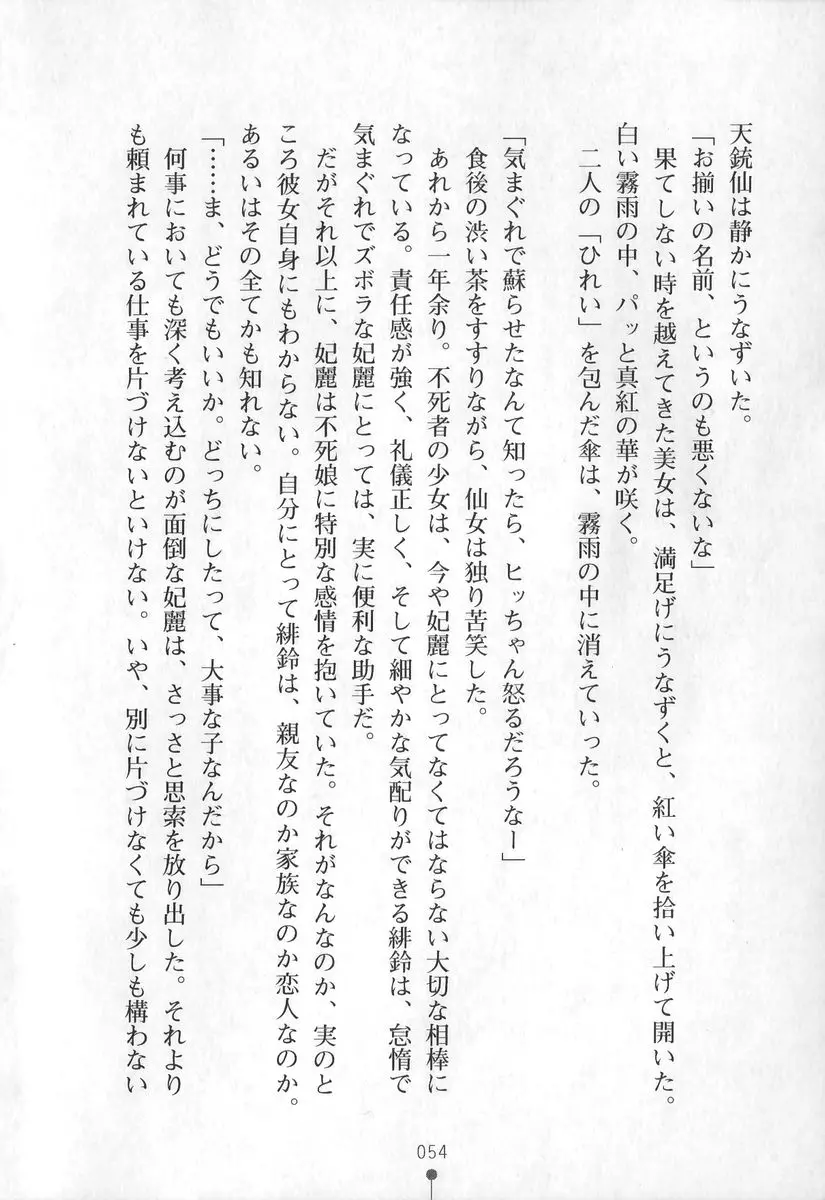 天銃仙は静かにうなずいた。
「お揃いの名前、というのも悪くないな」
果てしない時を越えてきた美女は、満足げにうなずくと、紅い傘を拾い上げて開いた。
白い霧雨の中、パッと真紅の華が咲く。
二人の「ひれい」を包んだ傘は、霧雨の中に消えていった。
「気まぐれで蘇らせたなんて知ったら、ヒッちゃん怒るだろうなー」
食後の渋い茶をすすりながら、仙女は独り苦笑した。
あれから一年余り。不死者の少女は、今や妃麗にとってなくてはならない大切な相棒に
なっている。責任感が強く、礼儀正しく、そして細やかな気配りができる緋鈴は、怠惰で
気まぐれでズボラな妃麗にとっては、実に便利な助手だ。
だがそれ以上に、妃麗は不死娘に特別な感情を抱いていた。それがなんなのか、実のと
ころ彼女自身にもわからない。自分にとって緋鈴は、親友なのか家族なのか恋人なのか。
あるいはその全てかも知れない。
「……ま、どうでもいいか。どっちにしたって、大事な子なんだから」
何事においても深く考え込むのが面倒な妃麗は、さっさと思索を放り出した。それより
も頼まれている仕事を片づけないといけない。いや、別に片づけなくても少しも構わない
054